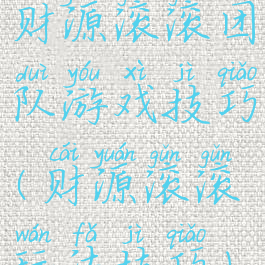 财源滚滚团
duì yóu xì jì qiǎo
队游戏技巧
cái yuán gǔn gǔn
(财源滚滚
wán fǎ jì qiǎo
玩法技巧)